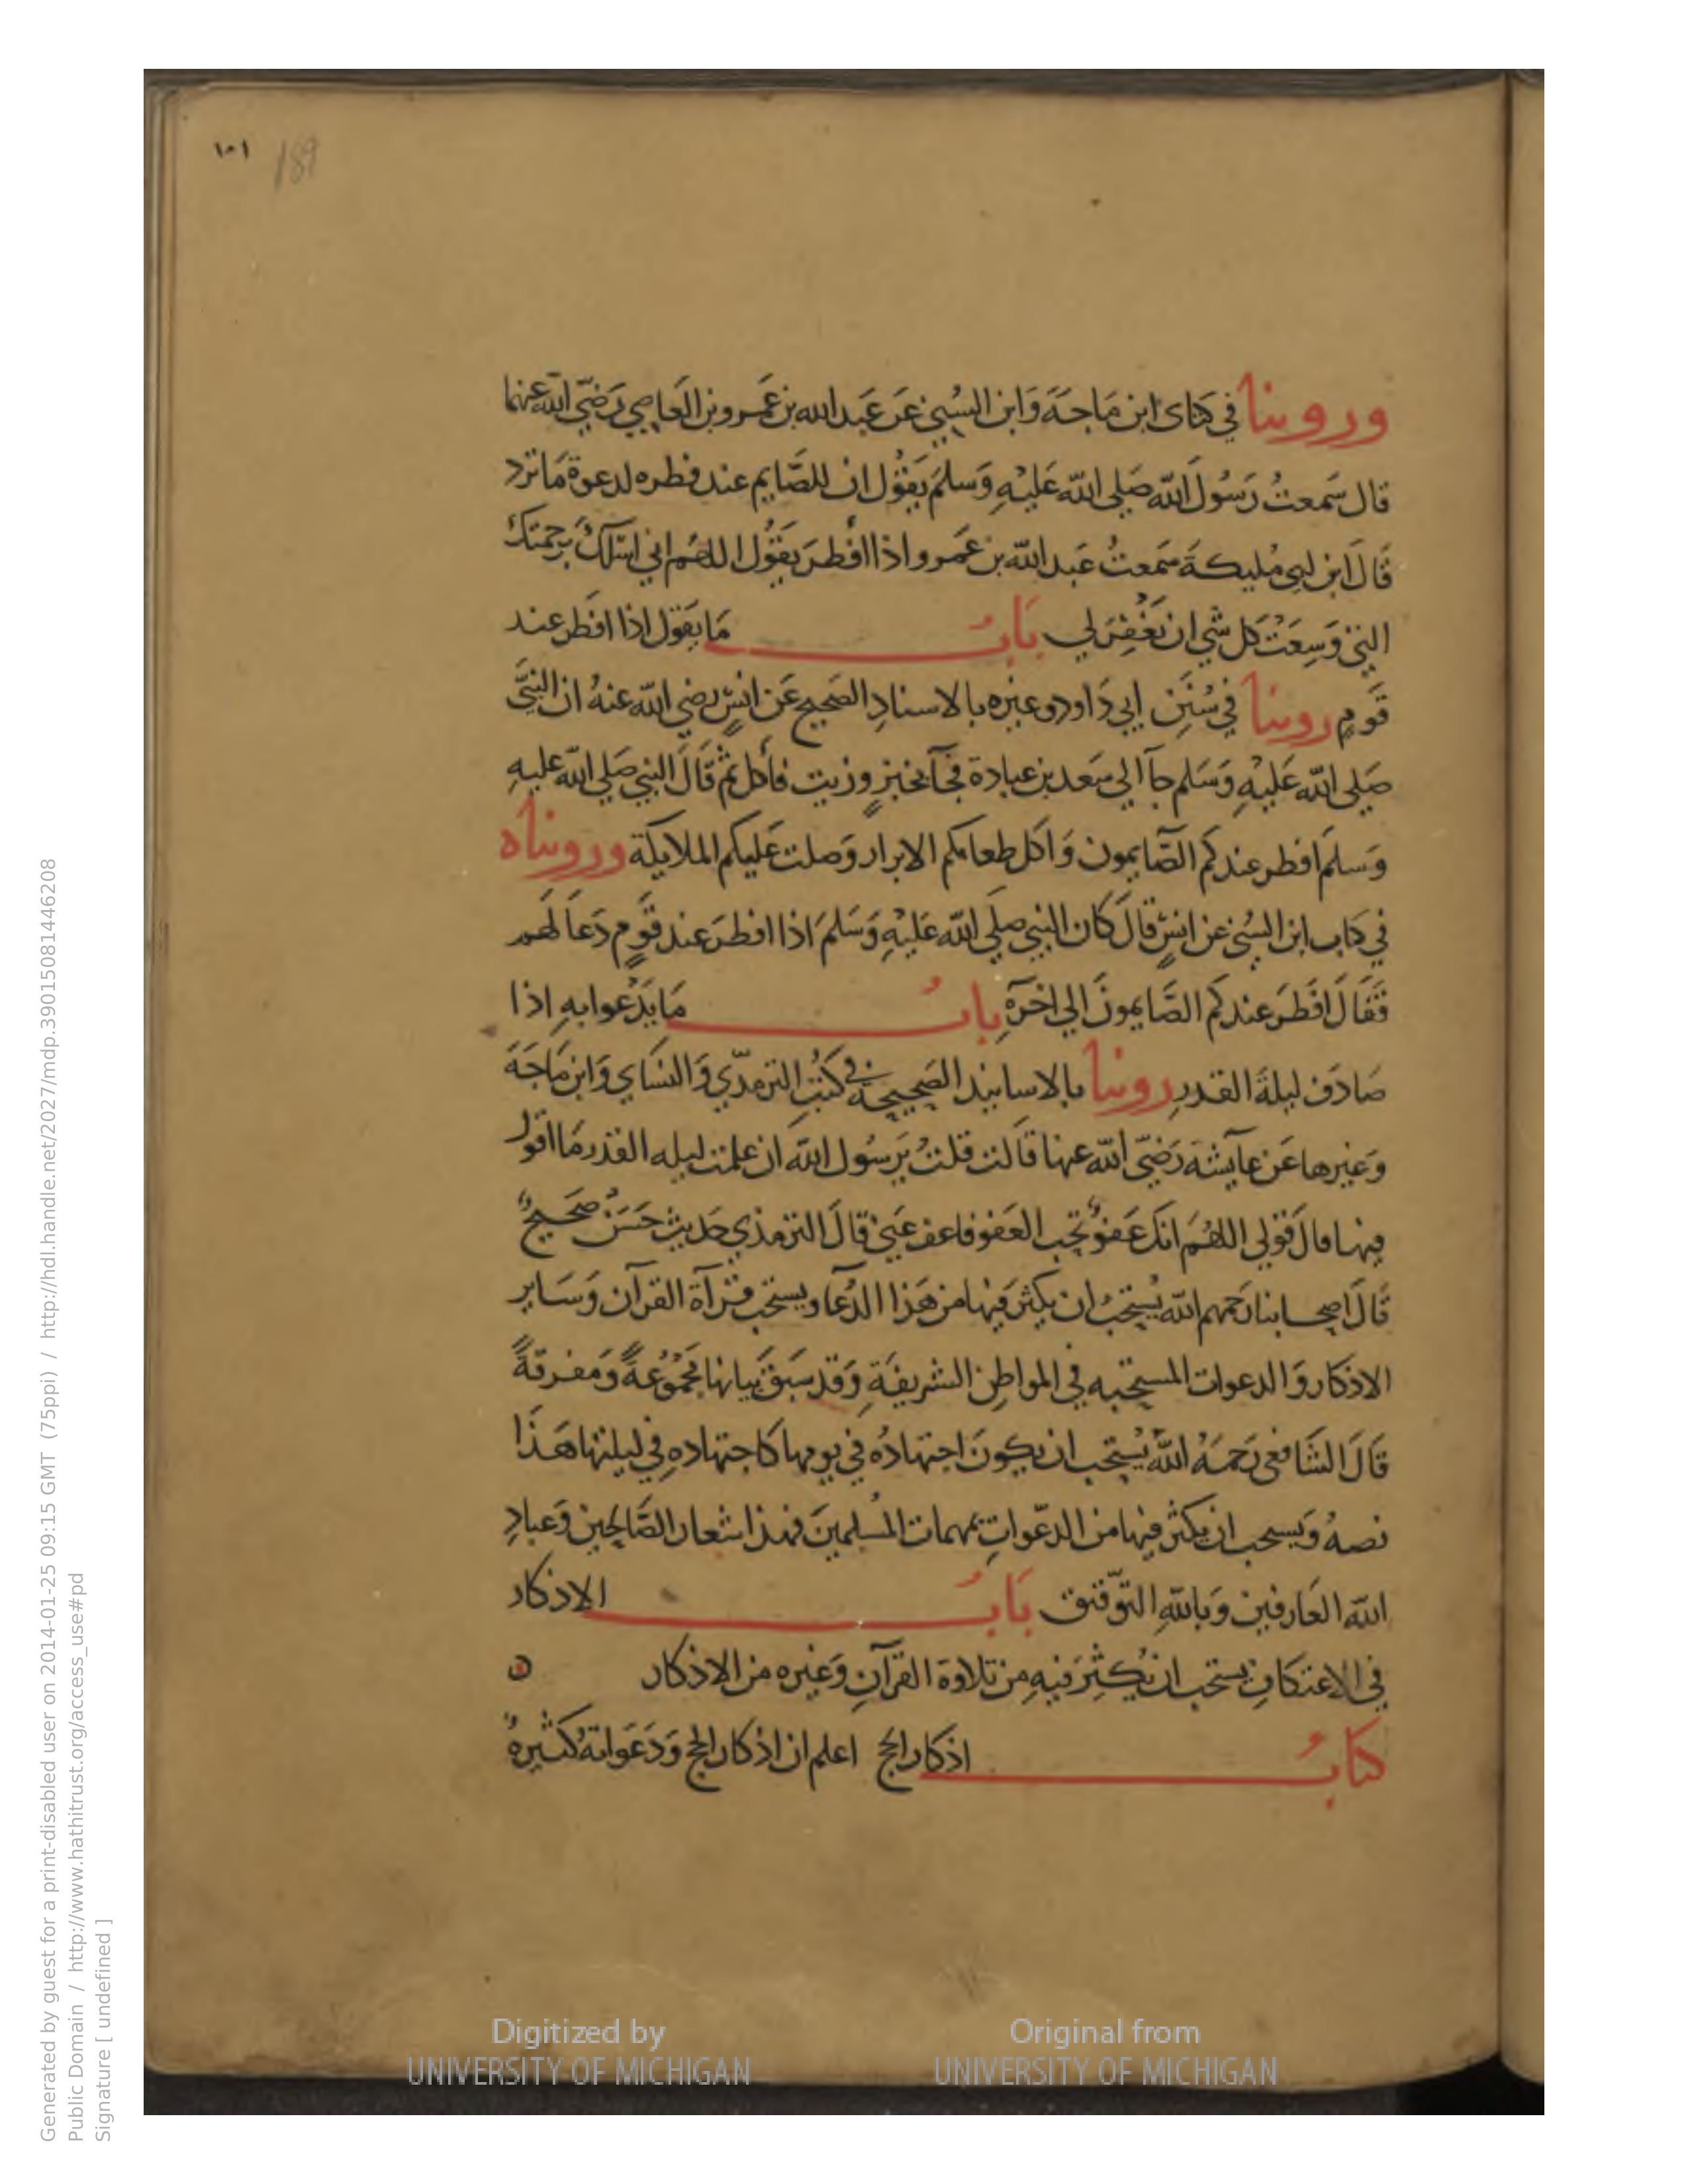 ١٠١
189
وروينا في كتابي ابن مَاجَةَ وَابن السُّني عَن عَبد الله بن عَمرو بن العَاصِي رَضيَ الله عنهما
قال سَمعتُ رَسُولَ الله صَلى الله عَليْهِ وَسلمَ يَقُول ان للصَّايم عند فطره لدعوة مَا ترد
قَالَ ابن ابي مُليكةَ سَمعتُ عَبد الله بن عَمرو اذا أفطرَ يَقُول اللهُم اني اسْئلكَ برحمتكَ
التي وَسِعَت كل شي ان تَغْفِرَ لي بَابُ مَا يَقول اذا افطر عند
قَومٍ روينا في سُنَنِ ابي دَاود وغيره بالاسنادِ الصَحيح عَن انسٍ رضي الله عنهُ ان النبيَّ
صَلى الله عَليْهِ وَسَلم جآ الي سَعد بن عبادة فجآ بخبزٍ وزيت فأكل ثم قَالَ النبي صَلي الله عليهِ
وَسلمَ افطر عندكم الصَّايمون وَاكل طعامكم الابرار وَصلت عَليكم الملايكة ورويناه
في كتاب ابن السُني عن انسٍ قالَ كان النبي صلي الله عَليْهِ وَسَلمَ اذا افطرَ عند قَومٍ دَعَا لَهم
فَقَالَ افْطَرَ عندكم الصَّايمونَ الي اخرَهِ بابُ مَا يَدْعوا بهِ اذا
صَادَف ليلةَ القدرِ روينا بالاسانيد الصَحيحة في كتُبِ الترمذي وَالنسَاي وَابن مَاجَةَ
وَغيرها عَن عآيشة رَضيَ الله عنها قالت قلتُ يَرسُول الله ان علمت ليله القدر مَا اقول
فيها قالَ قولي اللهُمَ انكَ عَفوٌ تحب العَفو فاعف عَني قالَ الترمذي حَديث حَسَنٌ صَحيحٌ
قَالَ اصحابنا رَحمهم الله يُستحبُ ان يكثر فيها من هَذا الدُعآ ويستحب قرآة القرآن وَسَاير
الاذكار وَالدعوات المستحبه في المواطن الشريفَةِ وَقد سَبقَ بيانها مَجموُعةً وَمفرقةً
قَالَ الشَّافعي رَحمَهُ اللهُ يُستحب ان يكونَ اجتهادُه في يومها كاجتهادهِ في ليلتها هَذا
نصهُ وَيسحب ان يكثر فيها من الدعَواتِ بمهمات المُسلمينَ فهذا شعار الصَّالحين وَعبادِ
الله العَارفين وَبالله التوّفيق بَابُ الاذكار
في الاعتكافِ يستحب ان يُكثِرَ فيهِ من تلاوَة القرآنِ وَغيره من الاذكار
كتابُ اذكار الحج اعلم ان اذكار الحج وَدَعَواتهُ كثيرهٌ
Digitized by
UNIVERSITY OF MICHIGAN
Original from
UNIVERSITY OF MICHIGAN
Generated by guest for a print-disabled user on 2014-01-25 09:15 GMT (75ppi) / http://hdl.handle.net/2027/mdp.39015081446208
Public Domain / http://www.hathitrust.org/access_use#pd
Signature [ undefined ]